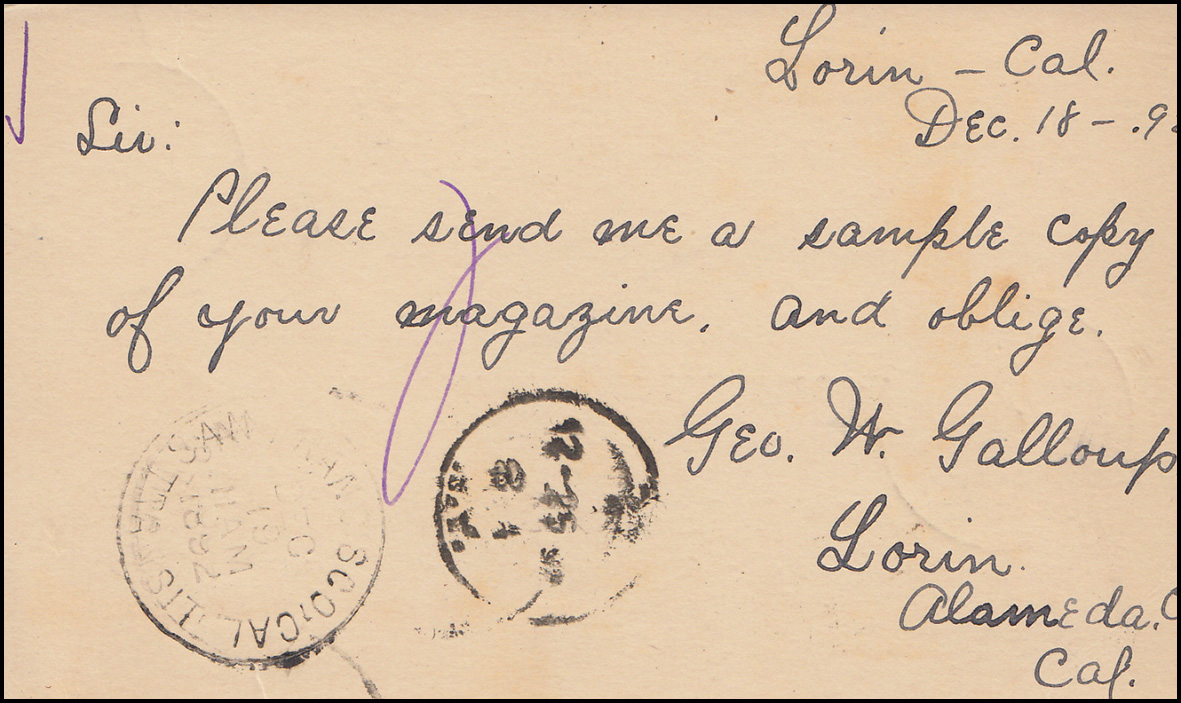 Lorin – Cal.
Dec. 18 – .9
Sir:
Please send me a sample copy
of your magazine, and oblige.
Geo. W. Galloup
Lorin.
Alameda. C
Cal.
SCO, CAL
1892
11 AM
12-